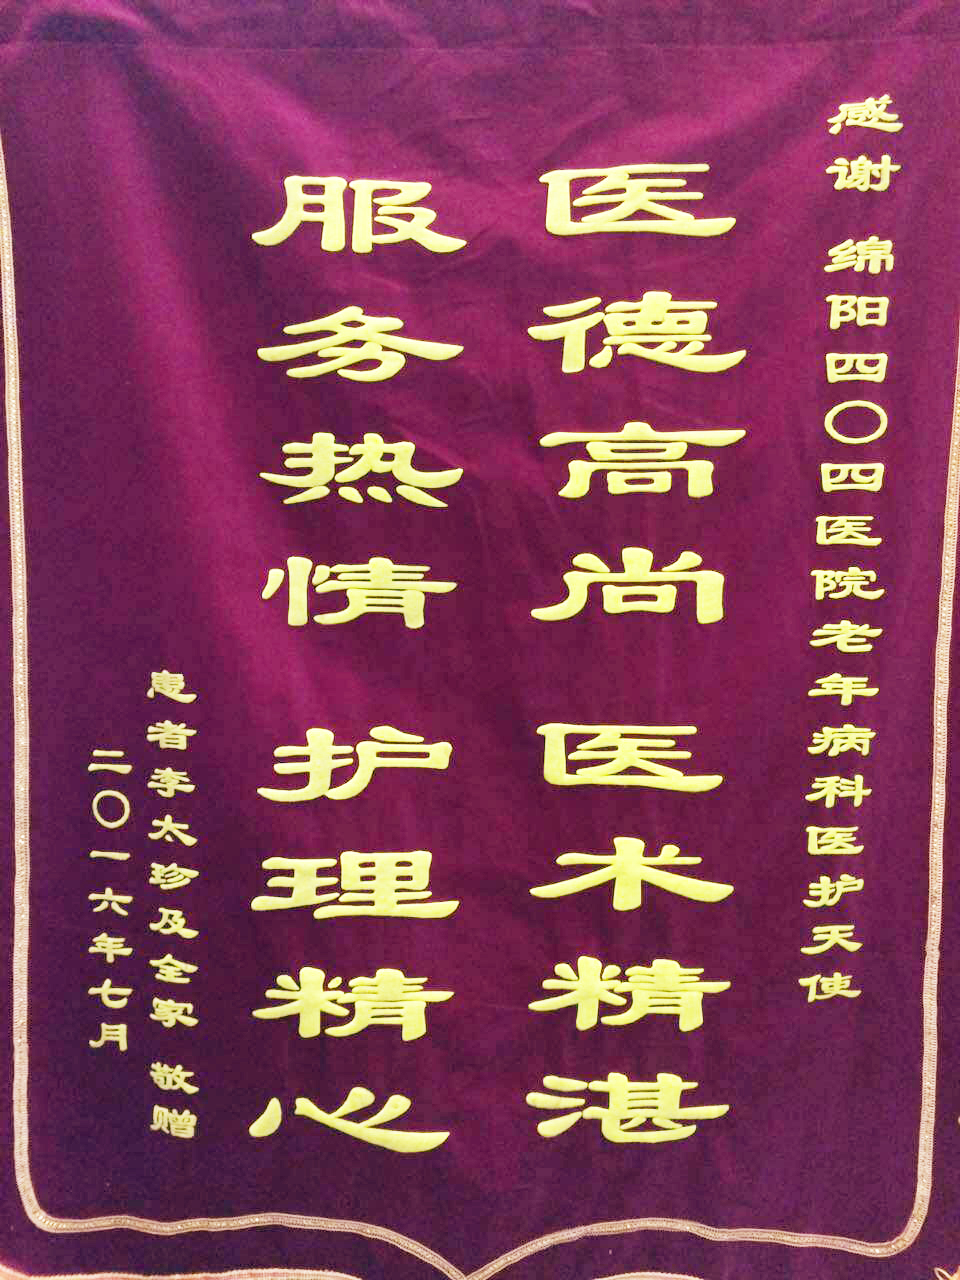 感谢 绵阳四〇四医院老年病科医护天使
医德高尚 医术精湛
服务热情 护理精心
患者李太珍及全家 敬赠
二〇一六年七月